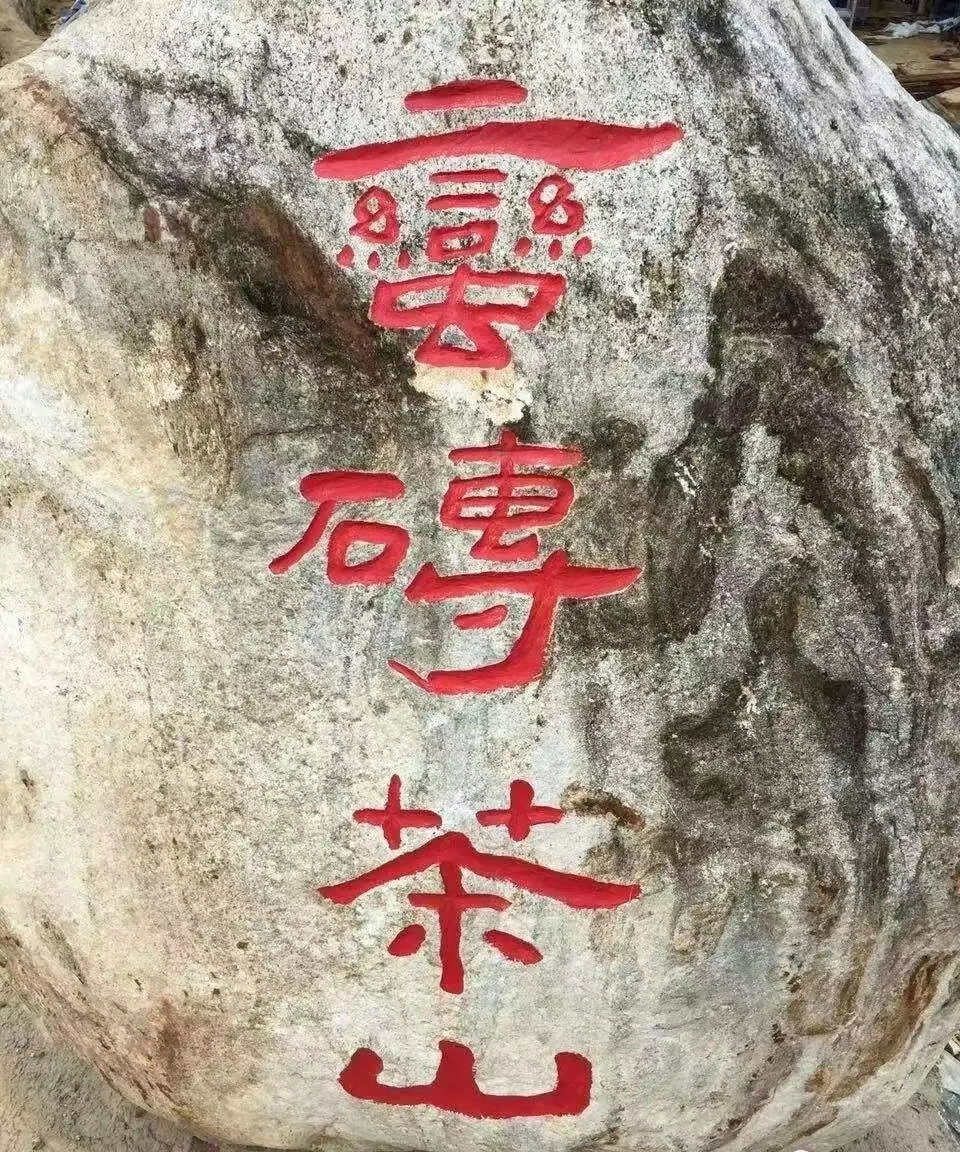 蠻磚茶山